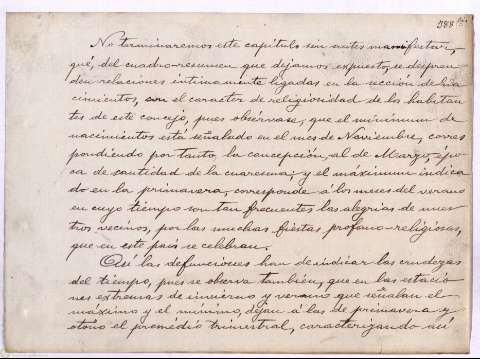 388
No terminaremos este capítulo sin antes manifestar,
qué, del cuadro-resumen que dejamos expuesto, se despren
den relaciones íntimamente ligadas en la sección de na
cimientos, con el caracter de religiosidad de los habitan
tes de este concejo, pues obsérvase, que el minimum de
nacimientos está señalado en el mes de Noviembre, corres
pondiendo por tanto, la concepción, al de Marzo, épo
ca de santidad de la cuaresma; y el máximum indica
do en la primavera, corresponde á los meses del verano
en cuyo tiempo son tan frecuentes las alegrias de nues
tros vecinos, por las muchas fiestas profano-religiosas,
que en este país se celebran.
Así las defunciones han de indicar las crudezas
del tiempo, pues se observa también, que en las estacio
nes extremas de invierno y verano que señalan el
máximo y el mínimo, dejan á las de primavera y
otoño el promedio trimestral, caracterizando así